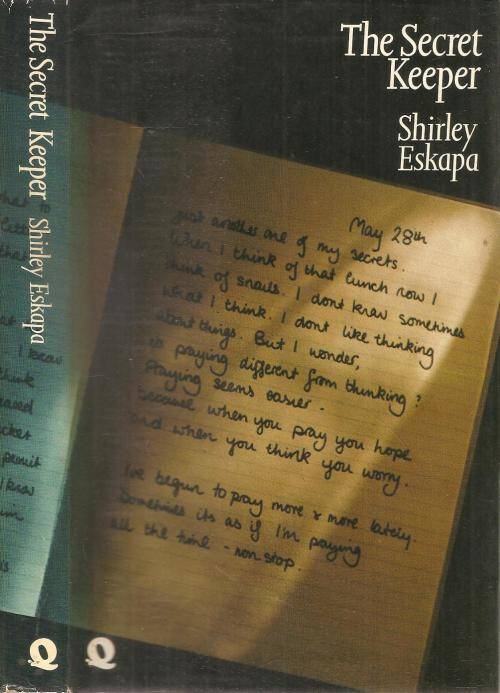 The Secret Keeper Shirley Eskapa
Q
The Secret
Keeper
Shirley
Eskapa
May 28th
Just another one of my secrets.
When I think of that lunch now I
think of snails. I dont know sometimes
what I think. I dont like thinking
about things. But I wonder,
is praying different from thinking?
Praying seems easier.
because when you pray you hope
and when you think you worry.
I've begun to pray more & more lately.
Sometimes its as if I'm praying
all the time - non stop.
Q
that
I know
think
permit
I know